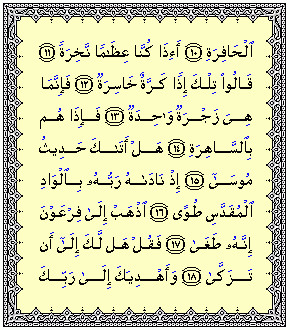 ٱلْحَافِرَةِ ١٠ أَءِذَا كُنَّا عِظَٰمًا نَّخِرَةً ١١
قَالُوا۟ تِلْكَ إِذًا كَرَّةٌ خَاسِرَةٌ ١٢ فَإِنَّمَا
هِىَ زَجْرَةٌ وَٰحِدَةٌ ١٣ فَإِذَا هُم
بِٱلسَّاهِرَةِ ١٤ هَلْ أَتَىٰكَ حَدِيثُ
مُوسَىٰٓ ١٥ إِذْ نَادَىٰهُ رَبُّهُۥ بِٱلْوَادِ
ٱلْمُقَدَّسِ طُوًى ١٦ ٱذْهَبْ إِلَىٰ فِرْعَوْنَ
إِنَّهُۥ طَغَىٰ ١٧ فَقُلْ هَل لَّكَ إِلَىٰٓ أَن
تَزَكَّىٰ ١٨ وَأَهْدِيَكَ إِلَىٰ رَبِّكَ